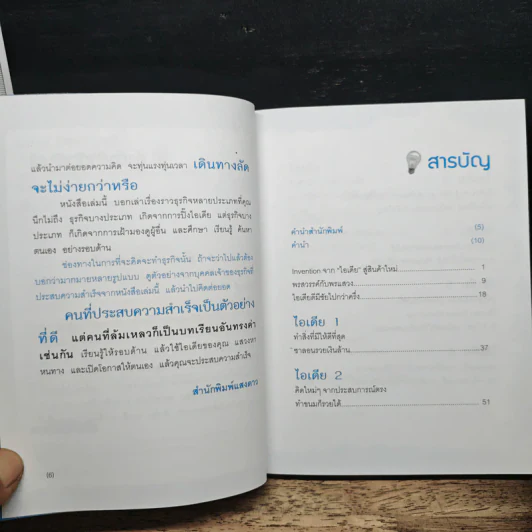 แล้วนำมาต่อยอดความคิด จะทุ่นแรงทุ่นเวลา เดินทางลัด
จะไม่ง่ายกว่าหรือ
หนังสือเล่มนี้ บอกเล่าเรื่องราวธุรกิจหลายประเภทที่คุณ
นึกไม่ถึง ธุรกิจบางประเภท เกิดจากการปิ๊งไอเดีย แต่ธุรกิจบาง
ประเภท ก็เกิดจากการเฝ้ามองดูผู้อื่น และศึกษา เรียนรู้ ค้นหา
ตนเอง อย่างรอบด้าน
ช่องทางในการที่จะคิดจะทำธุรกิจนั้น ถ้าจะว่าไปแล้วต้อง
บอกว่ามากมายหลายรูปแบบ ดูตัวอย่างจากบุคคลเจ้าของธุรกิจที่
ประสบความสำเร็จจากหนังสือเล่มนี้ แล้วนำไปคิดต่อยอด
คนที่ประสบความสำเร็จเป็นตัวอย่าง
ที่ดี แต่คนที่ล้มเหลวก็เป็นบทเรียนอันทรงค่า
เช่นกัน เรียนรู้ให้รอบด้าน แล้วใช้ไอเดียของคุณ แสวงหา
หนทาง และเปิดโอกาสให้ตนเอง แล้วคุณจะประสบความสำเร็จ
สำนักพิมพ์แสงดาว
(6)
สารบัญ
คำนำสำนักพิมพ์ (5)
คำนำ (10)
Invention จาก "ไอเดีย" สู่สินค้าใหม่ 1
พรสวรรค์กับพรแสวง 9
ไอเดียดีมีชัยไปกว่าครึ่ง 18
ไอเดีย 1
ทำสิ่งที่มีให้ดีที่สุด
ชาลอนรวยเงินล้าน 37
ไอเดีย 2
คิดใหม่ๆ จากประสบการณ์ตรง
ทำขนมก็รวยได้ 51